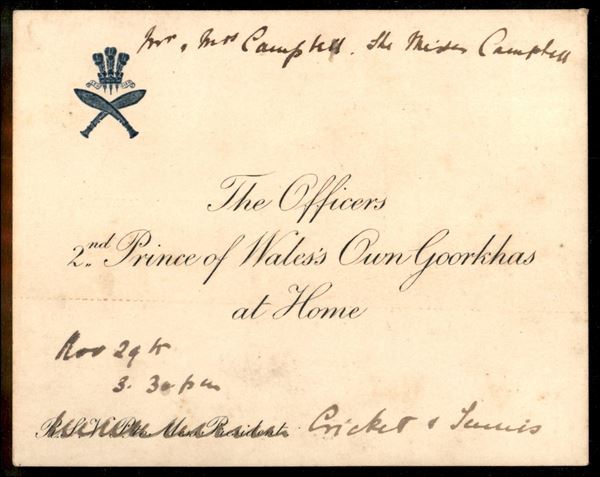 Mr & Mrs Campbell. The Misses Campbell
The Officers
2nd. Prince of Wales's Own Goorkhas
at Home
Nov 29th
3.30 pm
R.S.V.P. to Mess President. Cricket & Tennis